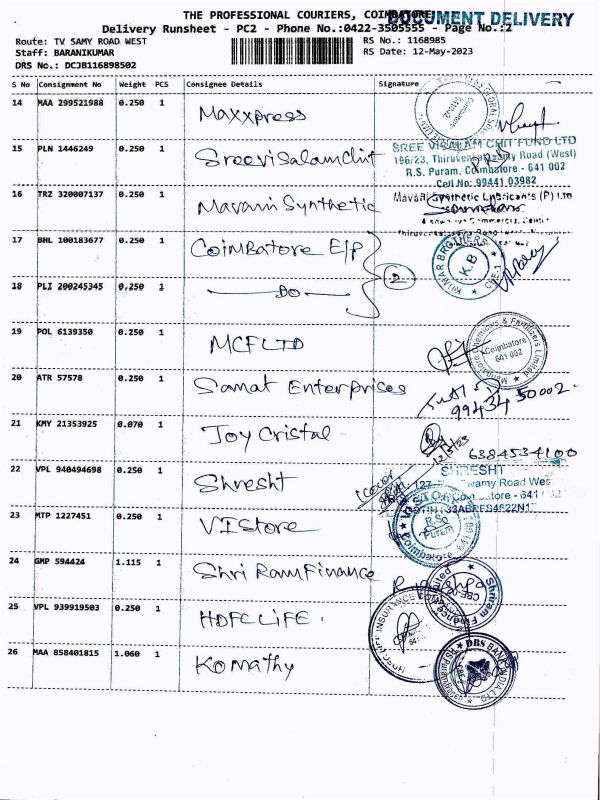 THE PROFESSIONAL COURIERS, COIMBATORE
DOCUMENT DELIVERY
Delivery Runsheet - PC2 - Phone No.:0422-3505555 - Page No.:2
Route: TV SAMY ROAD WEST
RS No.: 1168985
Staff: BARANIKUMAR
RS Date: 12-May-2023
DRS No.: DCJB116898502
S No Consignment No Weight PCS Consignee Details Signature
14 MAA 299521988 0.250 1 Maxxpress
15 PLN 1446249 0.250 1 Sreevisalamchit
SREE VISALAM CHIT FUND LTD
196/23, Thiruvenkatasamy Road (West)
R.S. Puram, Coimbatore - 641 002
Cell No: 99441 03982
16 TRZ 320007137 0.250 1 Mavani Synthetic
Mavani Synthetic Lubricants (P) Ltd
17 BHL 100183677 0.250 1 Coimbatore E/P
KUMAR BROTHERS
K.B
CBE-1
2
18 PLI 200245345 0.250 1 DO
19 POL 6139350 0.250 1 MCFLTD
Mangalore Chemicals & Fertilizers Limited
Coimbatore
641 002
20 ATR 57578 0.250 1 Samat Enterprices
99434 50002
21 KMY 21353925 0.070 1 Joy Cristal
12/5/23
6384534100
22 VPL 940494698 0.250 1 Shresht
SHRESHT
23 MTP 1227451 0.250 1 VIstore
R.S. Puram
Coimbatore
24 GMP 594424 1.115 1 Shri Ram Finance
Shriram Finance Limited
25 VPL 939919503 0.250 1 HDFC LIFE.
26 MAA 858401815 1.060 1 Komathy
DBS BANK INDIA LTD